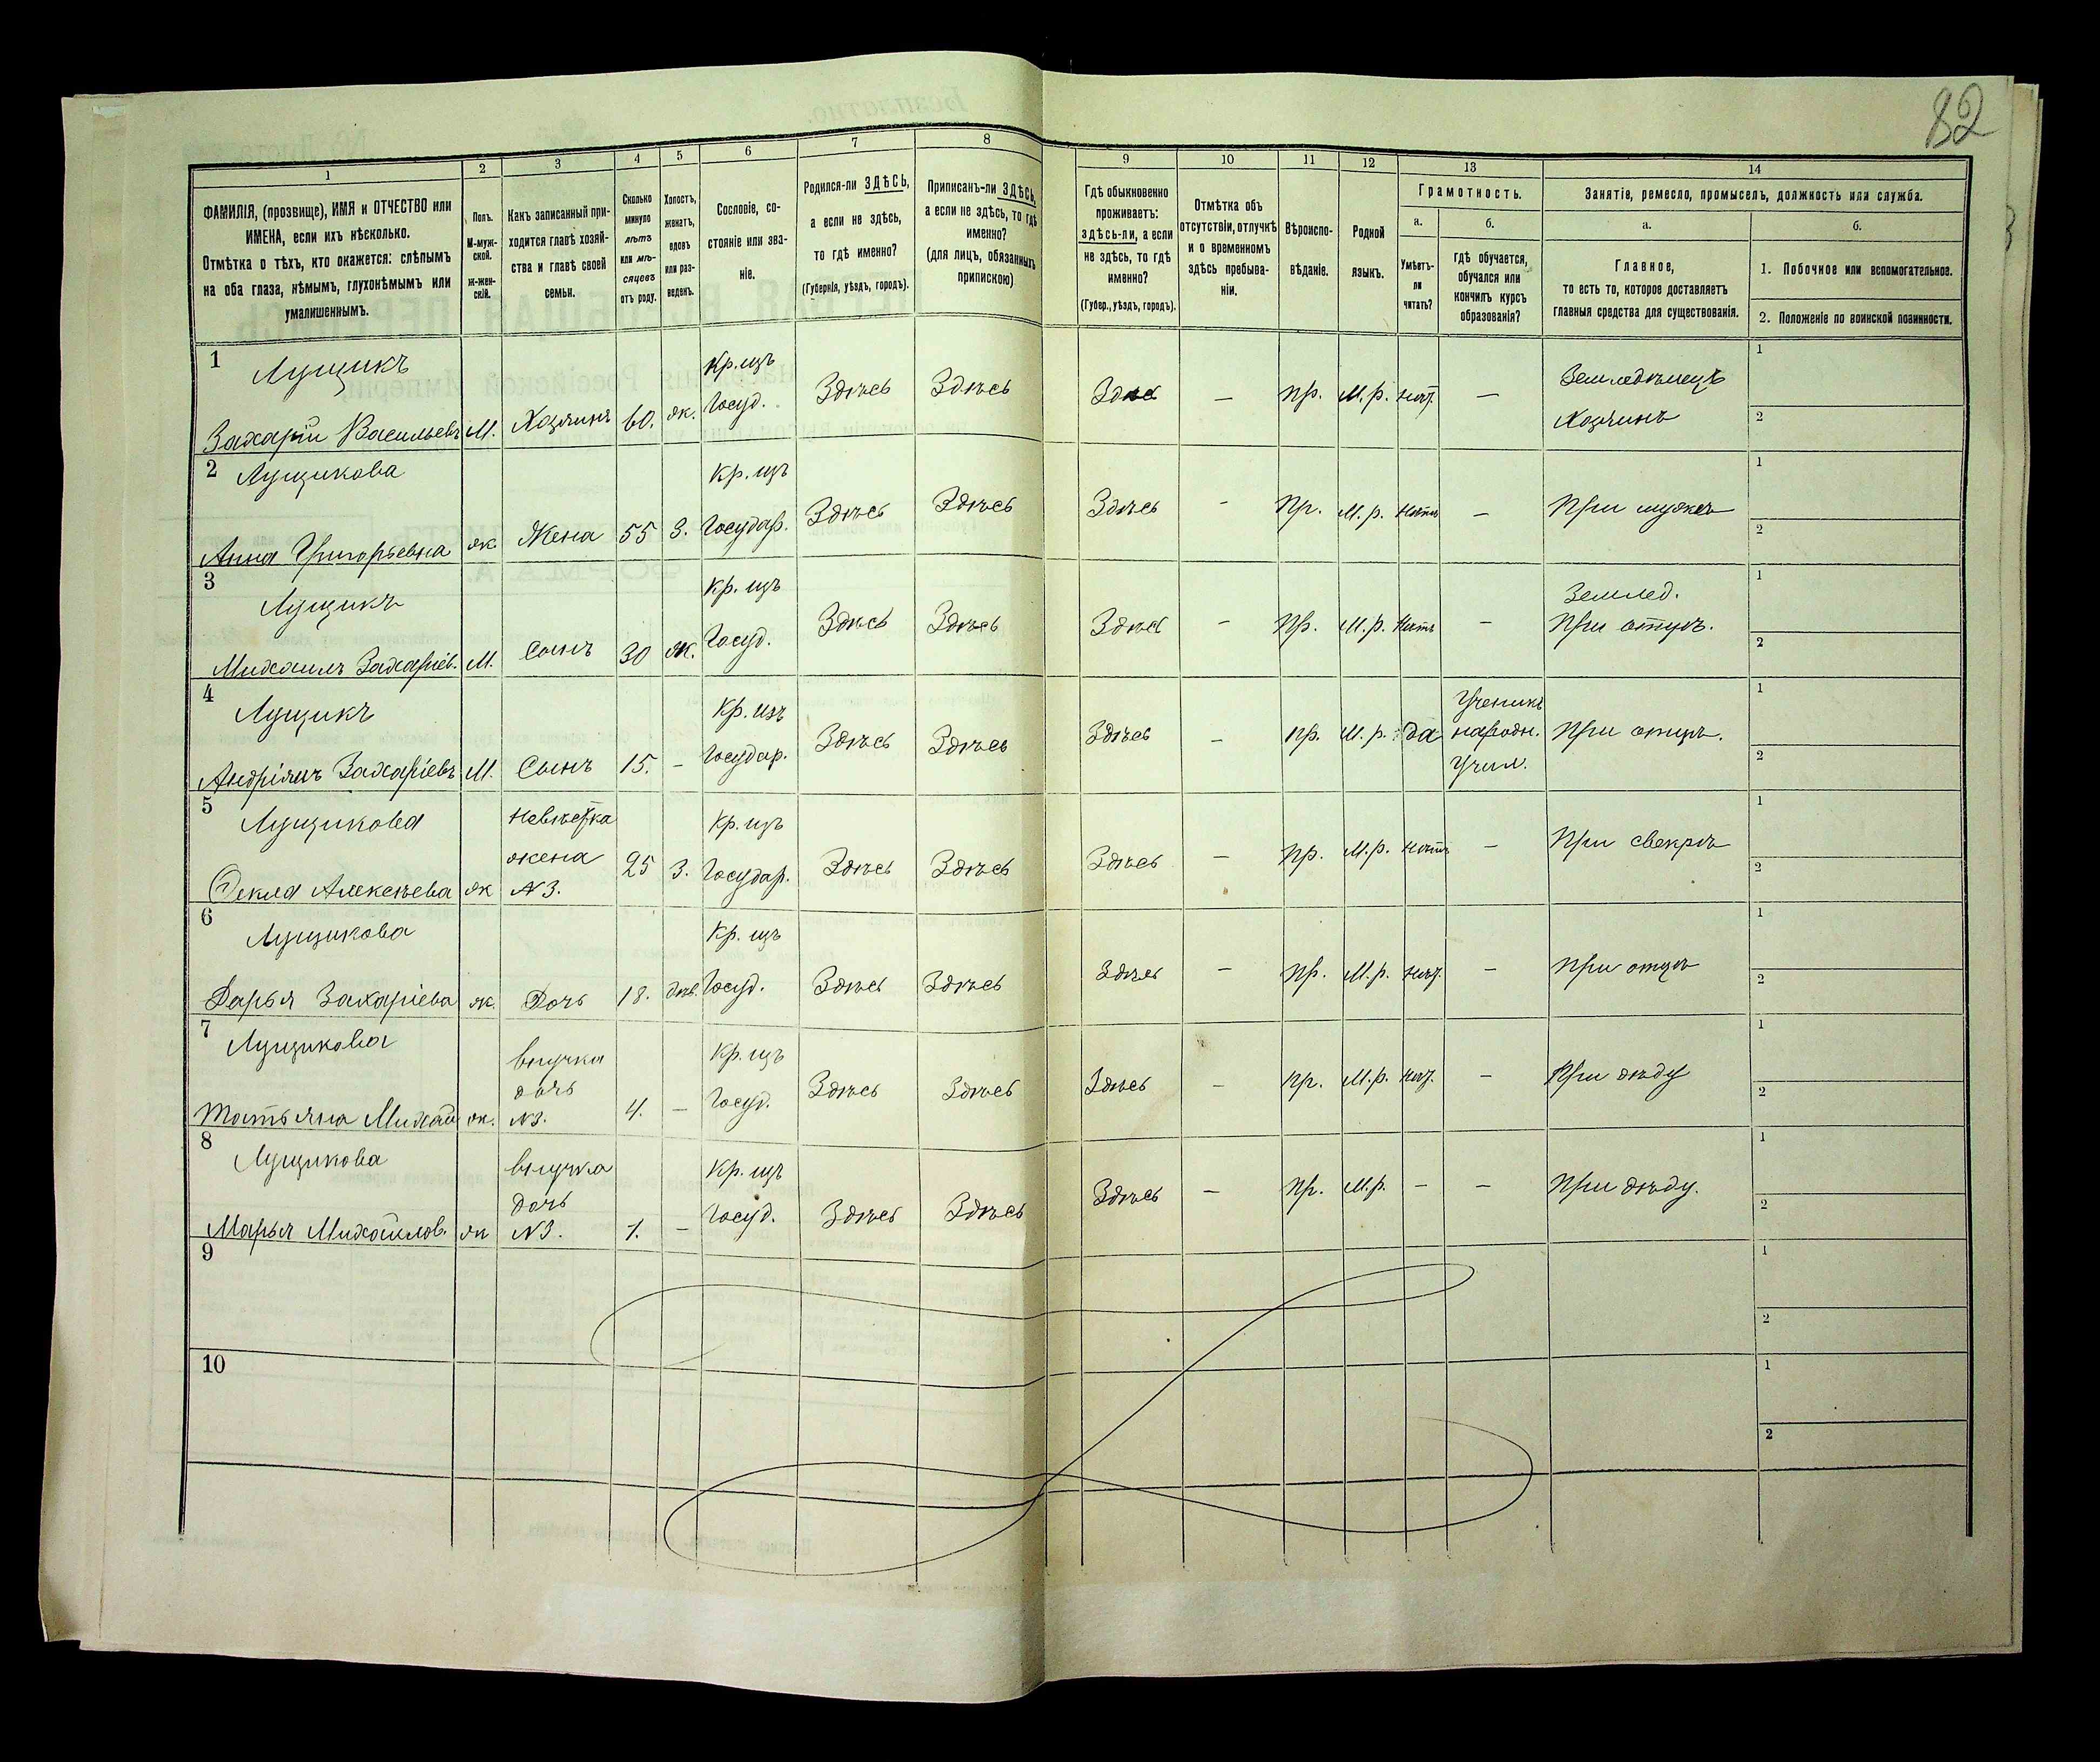 82
1 2 3 4 5 6 7 8 9 10 11 12 13 14
ФАМИЛІЯ, (прозвище), ИМЯ и ОТЧЕСТВО или
ИМЕНА, если ихъ нѣсколько.
Отмѣтка о тѣхъ, кто окажется: слѣпымъ
на оба глаза, нѣмымъ, глухонѣмымъ или
умалишеннымъ.
Полъ.
М-муж-
ской.
Ж-жен-
скій.
Какъ записанный при-
ходится главѣ хозяй-
ства и главѣ своей
семьи.
Сколько
минуло
лѣтъ
или мѣ-
сяцевъ
отъ роду.
Холостъ,
женатъ,
вдовъ
или раз-
веденъ.
Сословіе, со-
стояніе или зва-
ніе.
Родился-ли ЗДѢСЬ,
а если не здѣсь,
то гдѣ именно?
(Губернія, уѣздъ, городъ).
Приписанъ-ли ЗДѢСЬ,
а если не здѣсь, то гдѣ
именно?
(для лицъ, обязанныхъ
припискою)
Гдѣ обыкновенно
проживаетъ:
здѣсь-ли, а если
не здѣсь, то гдѣ
именно?
(Губер., уѣздъ, городъ).
Отмѣтка объ
отсутствіи, отлучкѣ
и о временномъ
здѣсь пребыва-
ніи.
Вѣроиспо-
вѣданіе.
Родной
языкъ.
Грамотность.
а.
Умѣетъ-
ли
читать?
б.
гдѣ обучается,
обучался или
кончилъ курсъ
образованія?
Занятіе, ремесло, промыселъ, должность или служба.
а.
Главное,
то есть то, которое доставляетъ
главныя средства для существованія.
б.
1. Побочное или вспомогательное.
2. Положеніе по воинской повинности.
1 Лущикъ Кр. изъ Земледѣлецъ 1
Захарій Васильевъ М. Хозяинъ 60. ж. Госуд. Здѣсь Здѣсь Здѣсь — пр. М.р. нѣт. — Хозяинъ 2
2 Лущикова Кр. изъ 1
Анна Григорьевна ж. Жена 55 З. Государ. Здѣсь Здѣсь Здѣсь - Пр. М.р. нѣтъ — При мужѣ 2
3 Лущикъ Кр. изъ Землед. 1
Михаилъ Захаріев. М. Сынъ 30 ж. Госуд. Здѣсь Здѣсь Здѣсь - Пр. М.р. нѣтъ — При отцѣ. 2
4 Лущикъ Кр. изъ Ученикъ 1
Андріянъ Захаріевъ М. Сынъ 15. - Государ. Здѣсь Здѣсь Здѣсь — пр. М.р. да народн. При отцѣ. 2
Учил.
5 Лущикова невѣстка Кр. изъ 1
жена
Текла Алексѣева ж №3. 25 З. Государ. Здѣсь Здѣсь Здѣсь — пр. М.р. нѣтъ — При свекрѣ 2
6 Лущикова Кр. изъ 1
Дарья Захаріева ж. Дочь 18. дѣв. Госуд. Здѣсь Здѣсь Здѣсь — пр. М.р. нѣт. — при отцѣ 2
7 Лущикова внучка Кр. изъ 1
дочь
Татьяна Михай ж. №3. 4. — Госуд. Здѣсь Здѣсь Здѣсь — пр. М.р. нѣт. — При дѣду 2
8 Лущикова внучка Кр. изъ 1
дочь
Марья Михайлов. ж №3. 1. — Госуд. Здѣсь Здѣсь Здѣсь — пр. М.р. — — При дѣду. 2
9 1
2
10 1
2